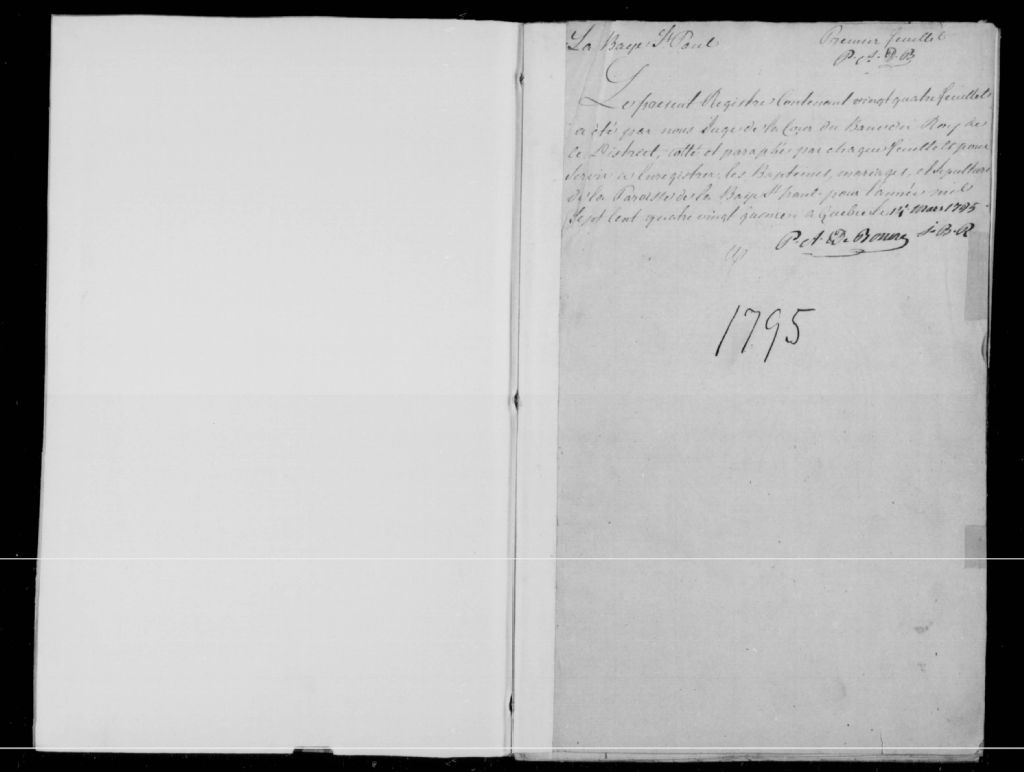 La Baye St Paul
Premier feuillet
P. A. D. B
Le present Registre Contenant vingt quatre feuillets
a été par nous Juge de la Cour du Banc du Roy de
ce District, cotté et paraphé par chaque feuillet pour
Servir a Enregistrer les Baptemes, mariages, et Sepultures
de la Paroisse de la Baye St Paul pour l'année mil
Sept Cent quatre vingt quinze a Quebec le Mars 1795
P. A. De Bonne J. B. R
1795